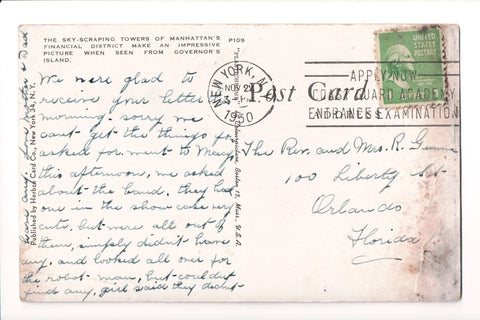 THE SKY-SCRAPING TOWERS OF MANHATTAN'S
FINANCIAL DISTRICT MAKE AN IMPRESSIVE
PICTURE WHEN SEEN FROM GOVERNOR'S
ISLAND.
P109
We were glad to
receive your letter
morning. sorry we
cant get the things you
asked for. went to Macys
this afternoon, we asked
about the band, they had
one in the show case very
cute, but were all out of
them, simply didn't have
any. and looked all over for
the robot man, but couldnt
find any, girl said they didnt
have any. Love Mother & Dad
Published by Herbert Card Co., New York 34, N. Y.
Mass., U.S.A.
NEW YORK, N.Y.
NOV 2
1950
Post Card
APPLY NOW
COAST GUARD ACADEMY
ENTRANCE EXAMINATION
UNITED STATES
POSTAGE
The Rev. and Mrs. R.
100 Liberty St
Orlando
Florida